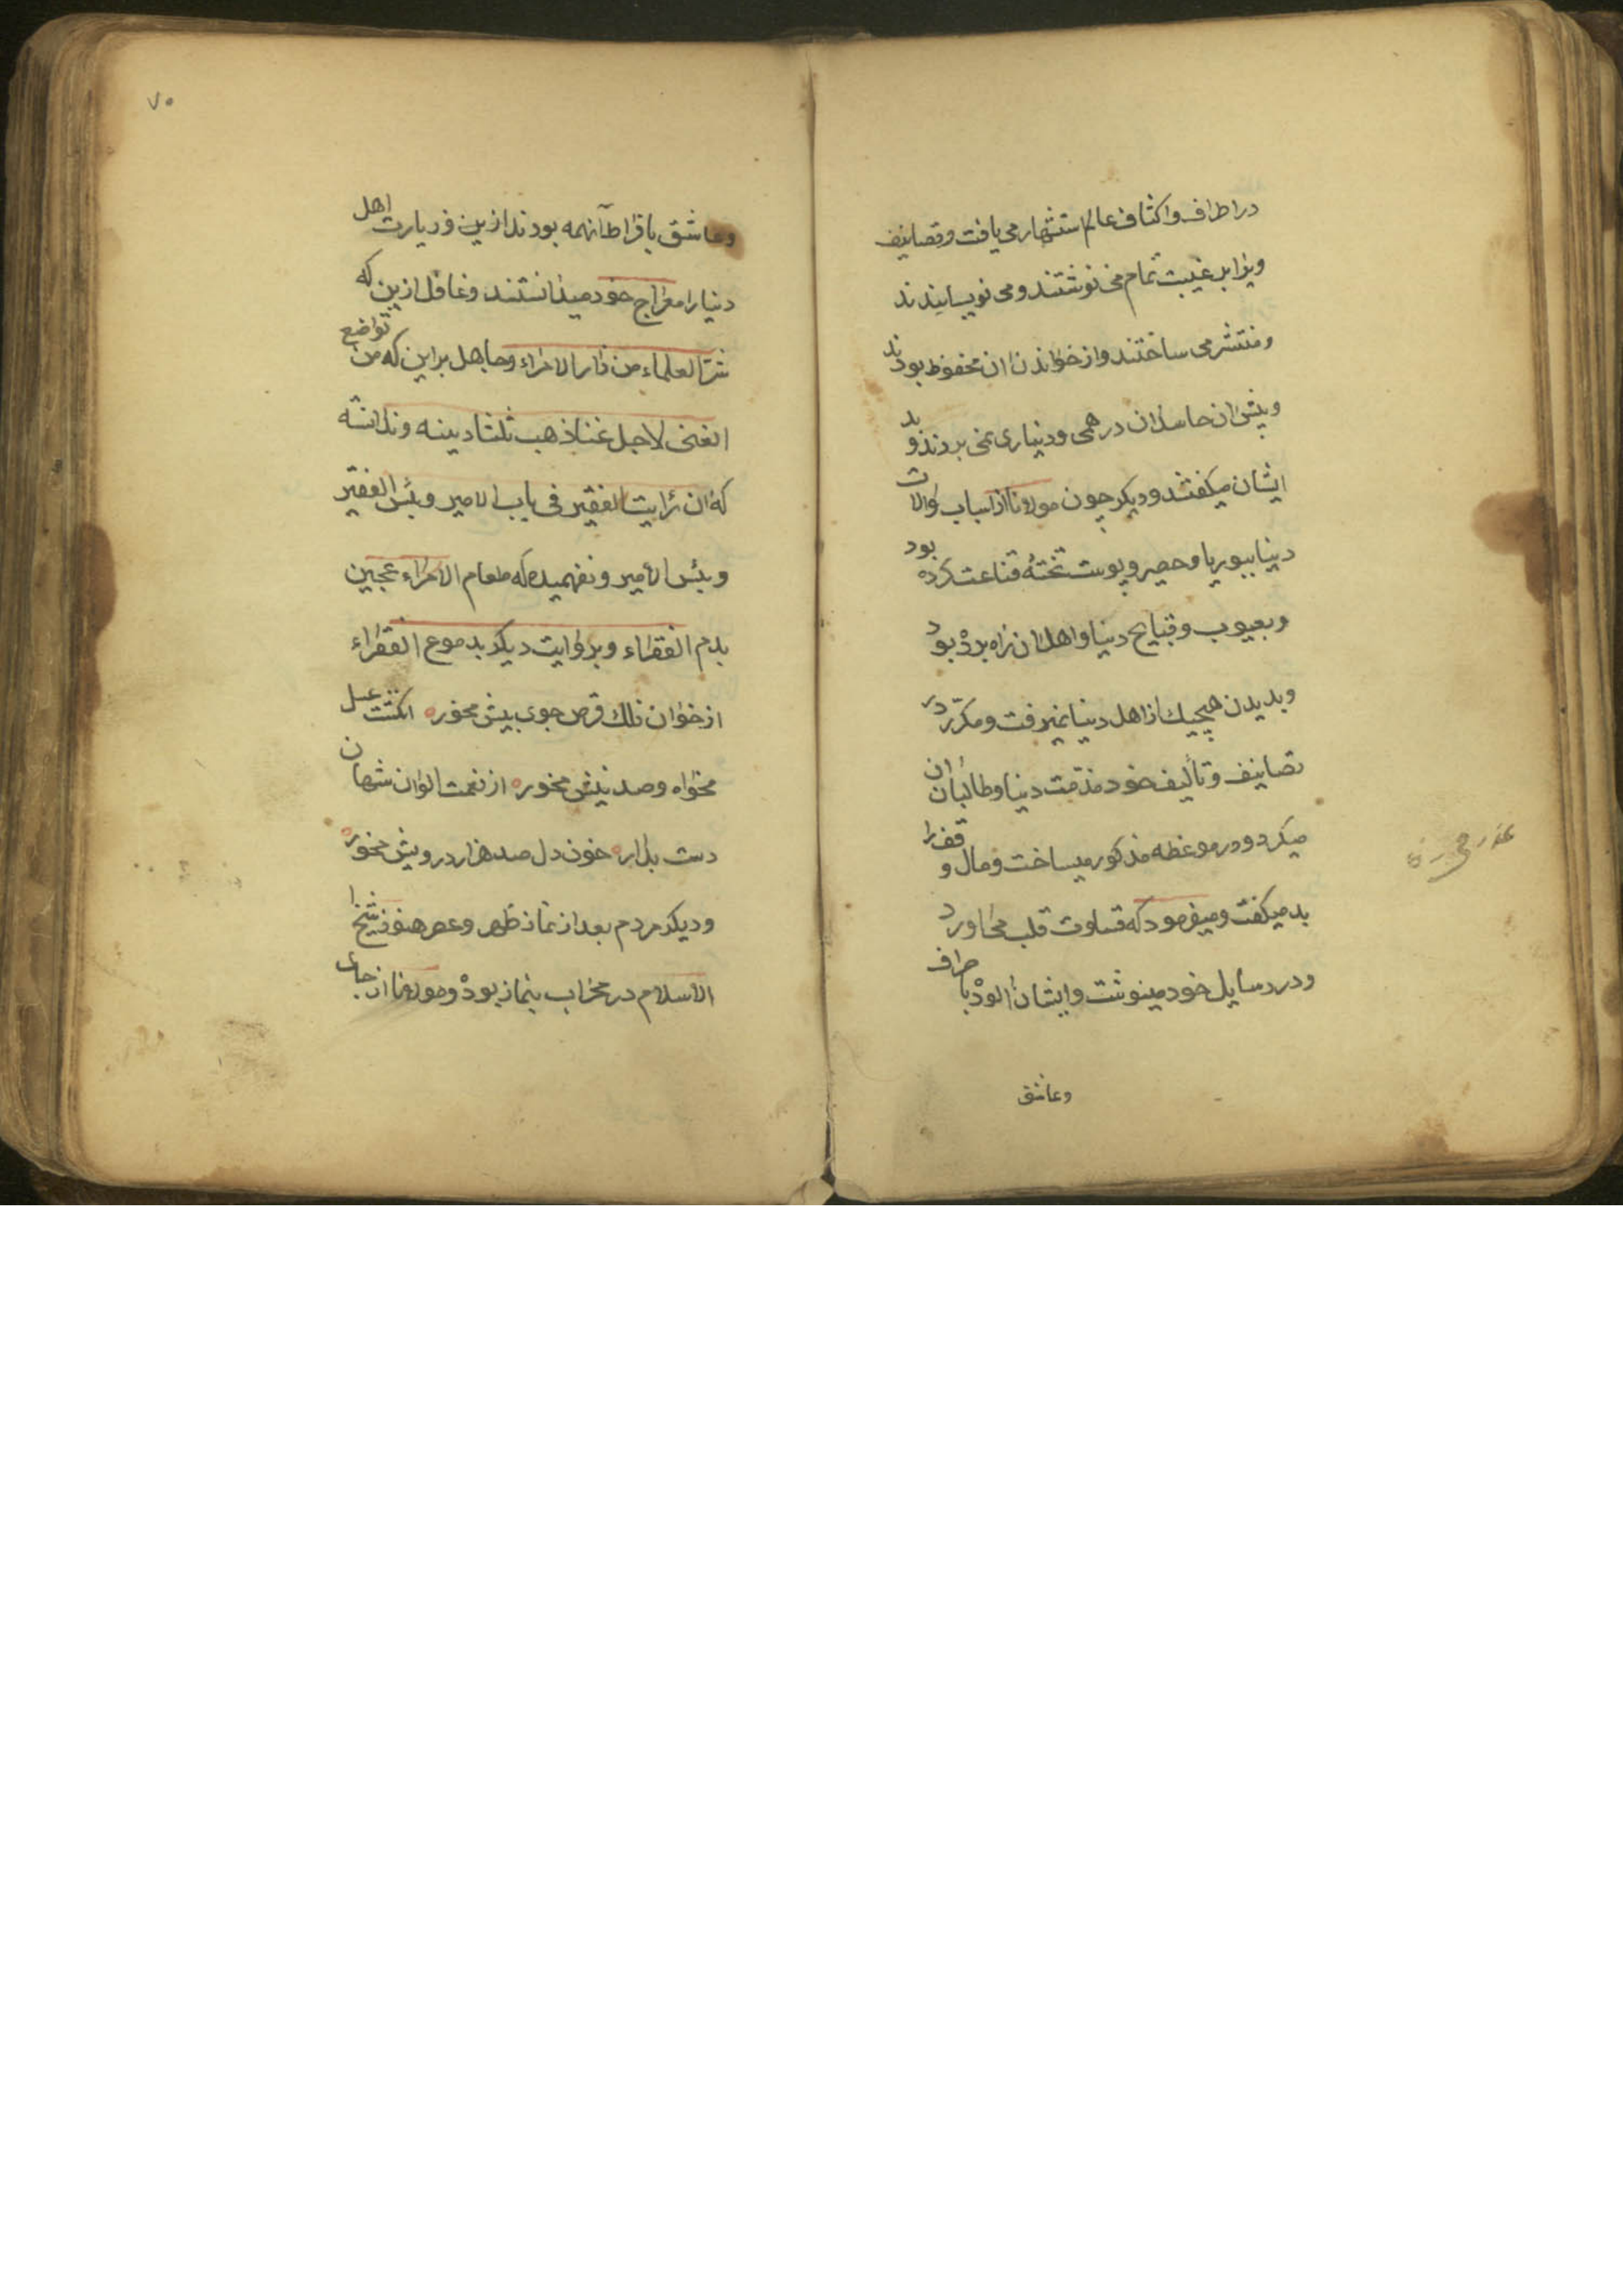 در اطراف و اکناف عالم استشهار می یافت و تصانیف
ویرا بد غیبت تمام می نوشتند و می نویسانیدند
و منتشر می ساختند و از خواندن ان محفوظ بودند
و پیش ان حاسدان درهمی و دیناری نمی برزند و بد
ایشان میکفتند و دیکر چون مولانا از اسباب و الات
دنیا ببوریا و حصیر و پوست تختهٔ قناعت کرده بود
و بعیوب و قبایح دنیا و اهل ان راه برده بود
و بدیدن هیچیك از اهل دنیا نمیرفت و مکرّر در
تصانیف و تألیف خود مذمّت دنیا و طالبان ان
میکرد و در موعظه مذکور میساخت و مال وقف را
بد میکفت و میفرمود که قساوت قلب می اورد
و در رسایل خود مینوشت و ایشان الوده با صراف
وعاشق
۷۵
وعاشق با قراط آنهمه بودند ازین و زیارت اهل
دنیا را معراج خود میدانستند و غافل ازین که
شرّ العلماء من زار الامراء و جاهل بر این که من تواضع
الغنی لاجل غناه ذهب ثلثا دینه و ندانسته
که ان رایت الفقیر فی باب الامیر و بئس الفقیر
و بئس الامیر و نفهمیده که طعام الامراء عجین
بدم الفقراء و بروایت دیکر بدموع الفقراء
از خوان فلك قرص جوی بیش مخور ه انکشت عسل
مخواه و صد نیش مخور ه از نعمت الوان شهان
دست بدار ه خون دل صد هزار درویش مخور ه
و دیکر مردم بعد از نماز ظهر و عصر هنوز شیخ ا
الاسلام در محراب بنماز بوده و مولانا از جای